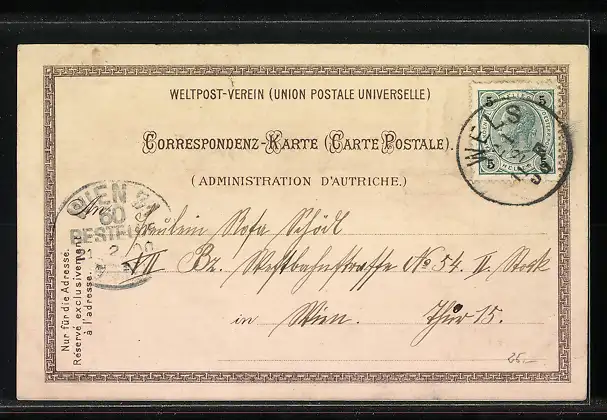 WELTPOST-VEREIN (UNION POSTALE UNIVERSELLE)
CORRESPONDENZ-KARTE (CARTE POSTALE).
(ADMINISTRATION D'AUTRICHE.)
5 5
5 5
WELS
WIEN
60
BESTELLT
An Fräulein Rosa Schödl
VII Bz. Westbahnstrasse No 54. II. Stock
in Wien. Thür 15.
Nur für die Adresse.
Réservé exclusivement
à l'adresse.
25.-